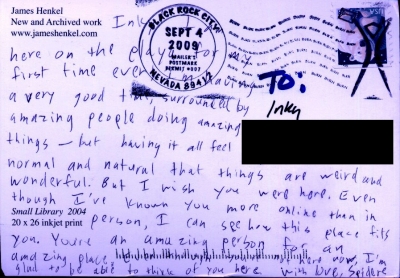 James Henkel
New and Archived work
www.jameshenkel.com
Inky
BLACK ROCK CITY
SEPT 4
2009
MAILER'S
POSTMARK
PERMIT #007
NEVADA 89412
here on the playa for my
first time ever I'm having
a very good time, surrounded by
amazing people doing amazing
things — but having it all feel
normal and natural that things are weird and
wonderful. But I wish you were here. Even
though I've known you more online than in
person, I can see how this place fits
you. You're an amazing person for an
amazing place, here now, I'm
glad to be able to think of you here with love, Spidere
TO:
Inky
Small Library 2004
20 x 26 inkjet print